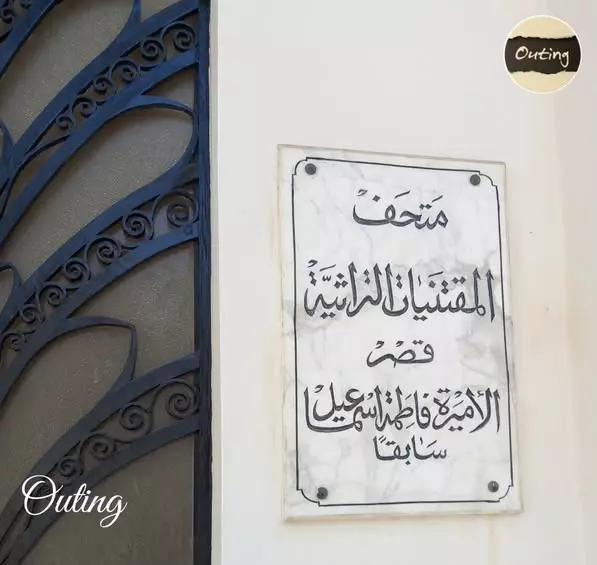 Outing
مَتحَفْ
المقتنَيات التراثيَّة
قصْر
الأميْرة فاطمة اسمَاعيْل
سَابقًا
Outing